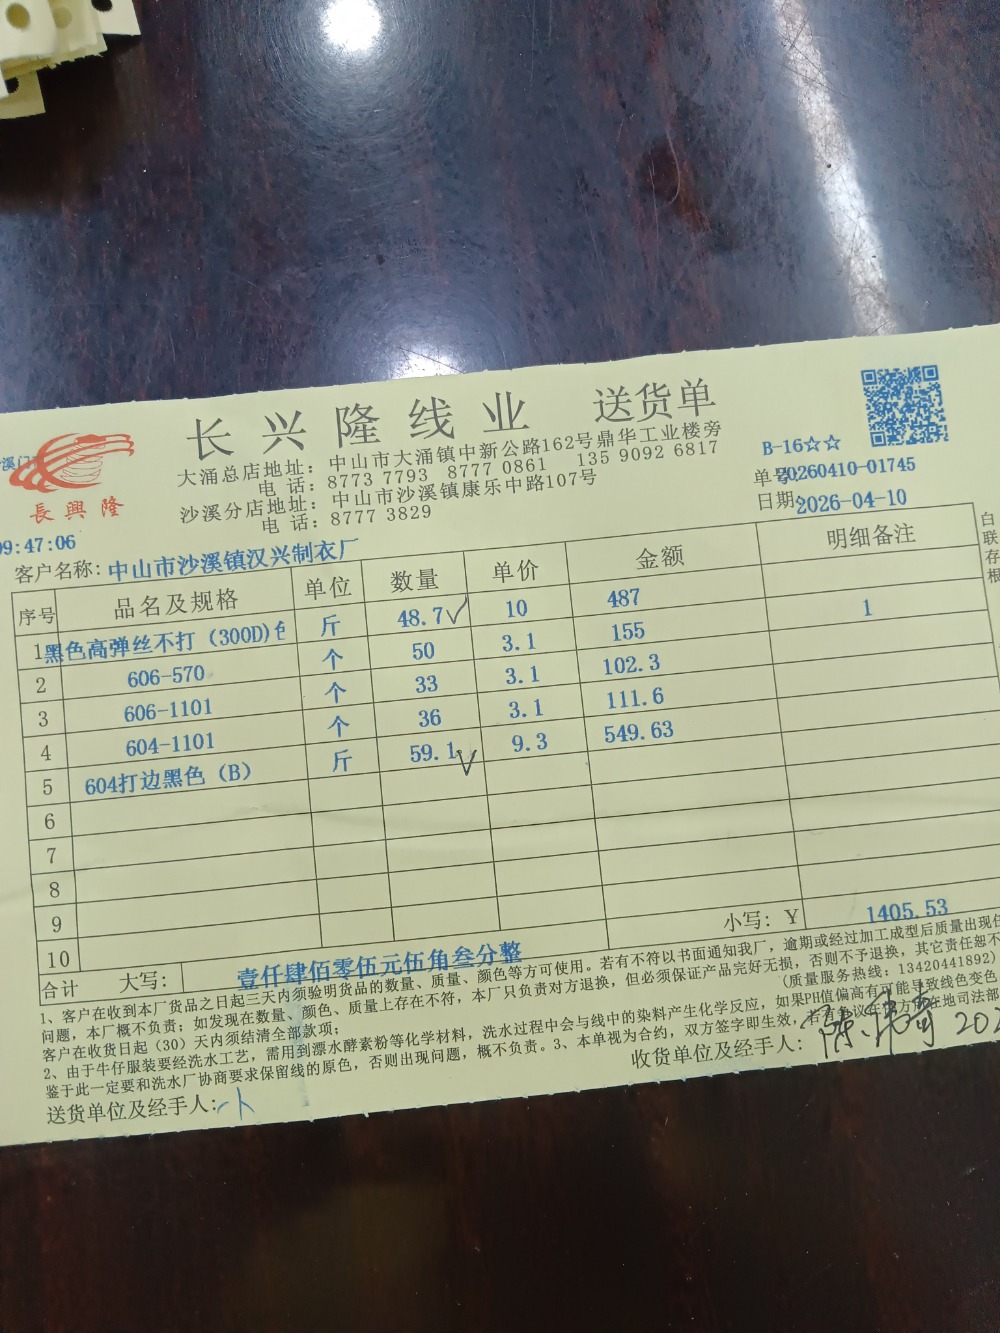 长兴隆线业 送货单
大涌总店地址：中山市大涌镇中新公路162号鼎华工业楼旁
电 话：8773 7793 8777 0861 135 9092 6817
沙溪分店地址：中山市沙溪镇康乐中路107号
电 话：8777 3829
長興隆
B-16☆☆
单号:20260410-01745
日期:2026-04-10
09:47:06
客户名称：中山市沙溪镇汉兴制衣厂
序号 品名及规格 单位 数量 单价 金额 明细备注
1 黑色高弹丝不打（300D) 斤 48.7 10 487
2 606-570 个 50 3.1 155 1
3 606-1101 个 33 3.1 102.3
4 604-1101 个 36 3.1 111.6
5 604打边黑色（B） 斤 59.1 9.3 549.63
6
7
8
9
10
小写：Y 1405.53
合计 大写：壹仟肆佰零伍元伍角叁分整
白联存根
1、客户在收到本厂货品之日起三天内须验明货品的数量、质量、颜色等方可使用。若有不符以书面通知我厂，逾期或经过加工成型后质量出现任
问题，本厂概不负责；如发现在数量、颜色、质量上存在不符，本厂只负责对方退换，但必须保证产品完好无损，否则不予退换，其它责任恕不
客户在收货日起（30）天内须结清全部款项； （质量服务热线：13420441892）
2、由于牛仔服装要经洗水工艺，需用到漂水酵素粉等化学材料，洗水过程中会与线中的染料产生化学反应，如果PH值偏高有可能导致线色变色
鉴于此一定要和洗水厂协商要求保留线的原色，否则出现问题，概不负责。3、本单视为合约，双方签字即生效，若有争议在我方所在地司法部
送货单位及经手人：
收货单位及经手人： 202